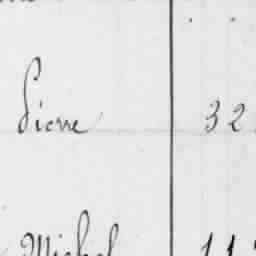 Pierre 32
Michel 11